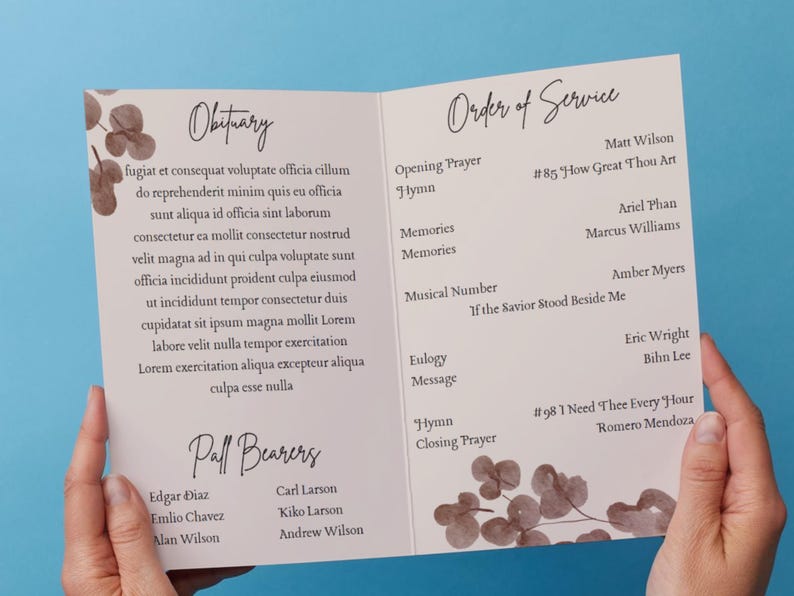 Obituary
fugiat et consequat voluptate officia cillum
do reprehenderit minim quis eu officia
sunt aliqua id officia sint laborum
consectetur ea mollit consectetur nostrud
velit magna ad in qui culpa voluptate sunt
officia incididunt proident culpa eiusmod
ut incididunt tempor consectetur duis
cupidatat sit ipsum magna mollit Lorem
labore velit nulla tempor exercitation
Lorem exercitation aliqua excepteur aliqua
culpa esse nulla
Pall Bearers
Edgar Diaz Carl Larson
Emlio Chavez Kiko Larson
Alan Wilson Andrew Wilson
Order of Service
Opening Prayer Matt Wilson
Hymn #85 How Great Thou Art
Memories Ariel Phan
Memories Marcus Williams
Musical Number Amber Myers
If the Savior Stood Beside Me
Eulogy Eric Wright
Message Bihn Lee
Hymn #98 I Need Thee Every Hour
Closing Prayer Romero Mendoza